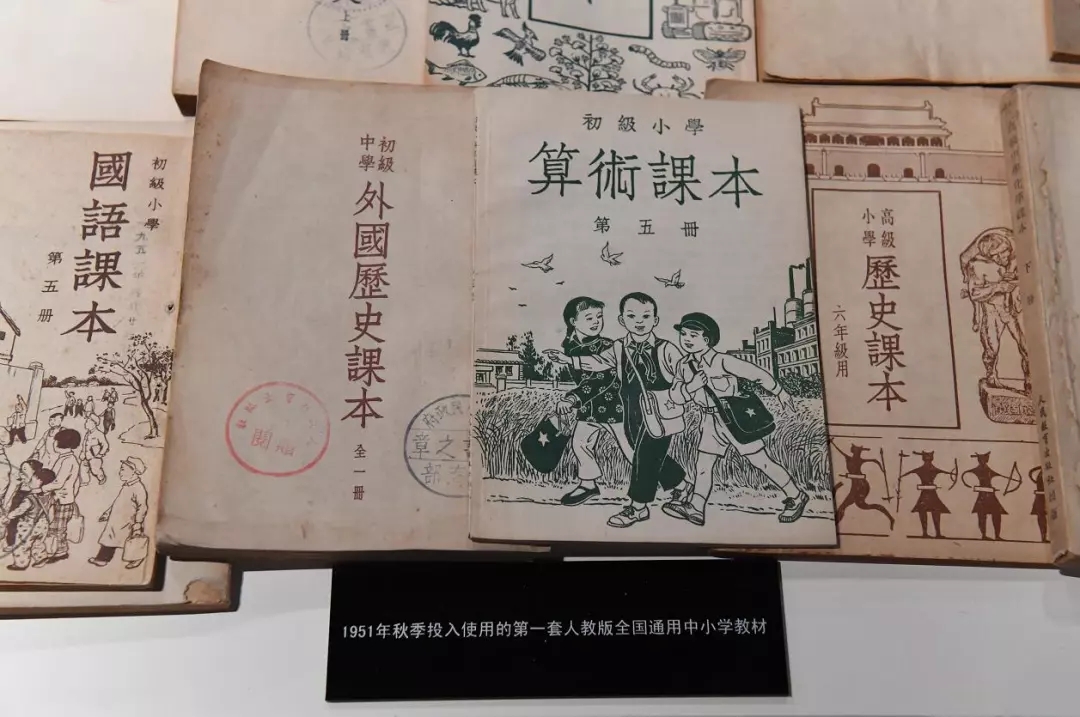 上冊
初級小學
國語課本
第五册
初級
中學
外國歷史課本
全一冊
初級小學
算術課本
第五冊
高級
小學
歷史課本
六年級用
下冊
人民教育出版社
1951年秋季投入使用的第一套人教版全国通用中小学教材